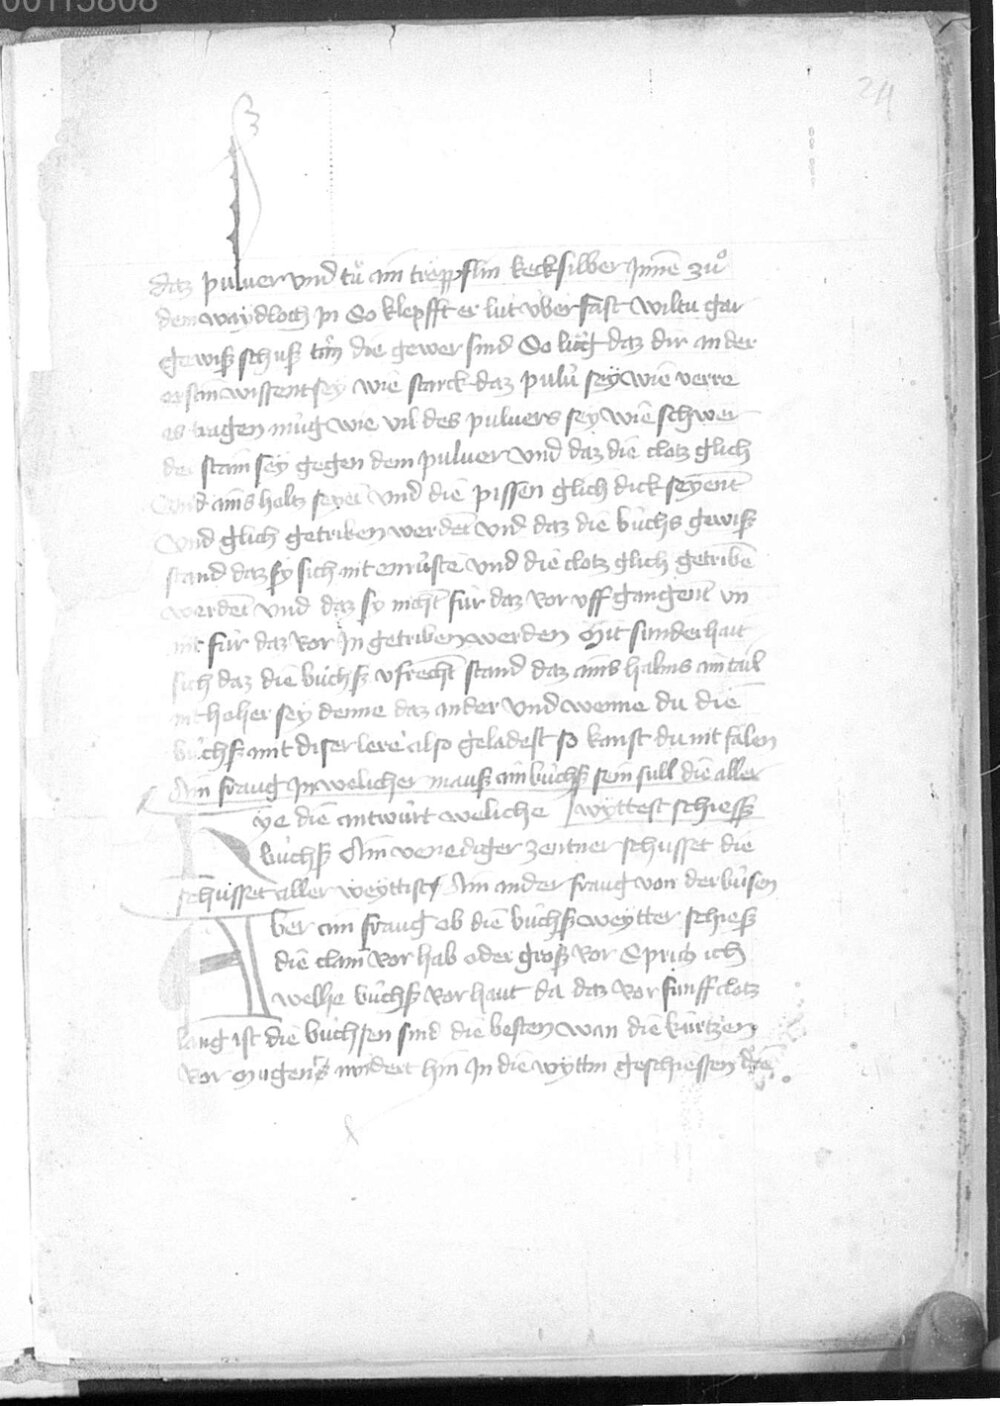 00115808
24
daz puluer vnd tů ain treppflin kecksilber Jnnē zů
dem waydloch jn So klepfft er lut v̈ber fast wiltu gar
gewiß schuß tůn die gewer sind So lůg daz dir an der
ersten wissent sey wie starck daz pulū sey wie verre
es tragen mǔg wie vil des puluers sey wie schwer
der stain sey gegen dem puluer vnd daz die clotz glich
vnd ains holtz seyen vnd die pissen glich dick seyent
vnd glich getriben werdēt vnd daz die bůchs gewiß
stand daz sy sich nit enrůste vnd die clotz glich getribē
werdēt vnd daz sy nicht fúr daz ror vff gangent vn
nit fúr daz ror Jn getriben werden Mit sunderhait
sich daz die bůchß vfrecht stand daz ains halms ain tail
nit hoher sey denne daz ander vnd wenne du die
bůchß mit diser lere also geladest so kanst du nit fälen
Ain fraug Jn welicher mauß ain bůchß sein sull die aller
Hye die antwůrt weliche wyttest schiesß
bůchß Ain venediger zentner schusset die
schusset aller weyttist Ain ander fraug von der bůsen
Aber ain fraug ob die bůchß weytter schieß
die clain ror hab oder groß ror Sprich ich
welhe bůchß ror haut da daz ror fúnff clotz
lang ist die bůchsen sind die besten wan die kúrtzen
ror mugen nindert hin Jn die wyttin geschiessen